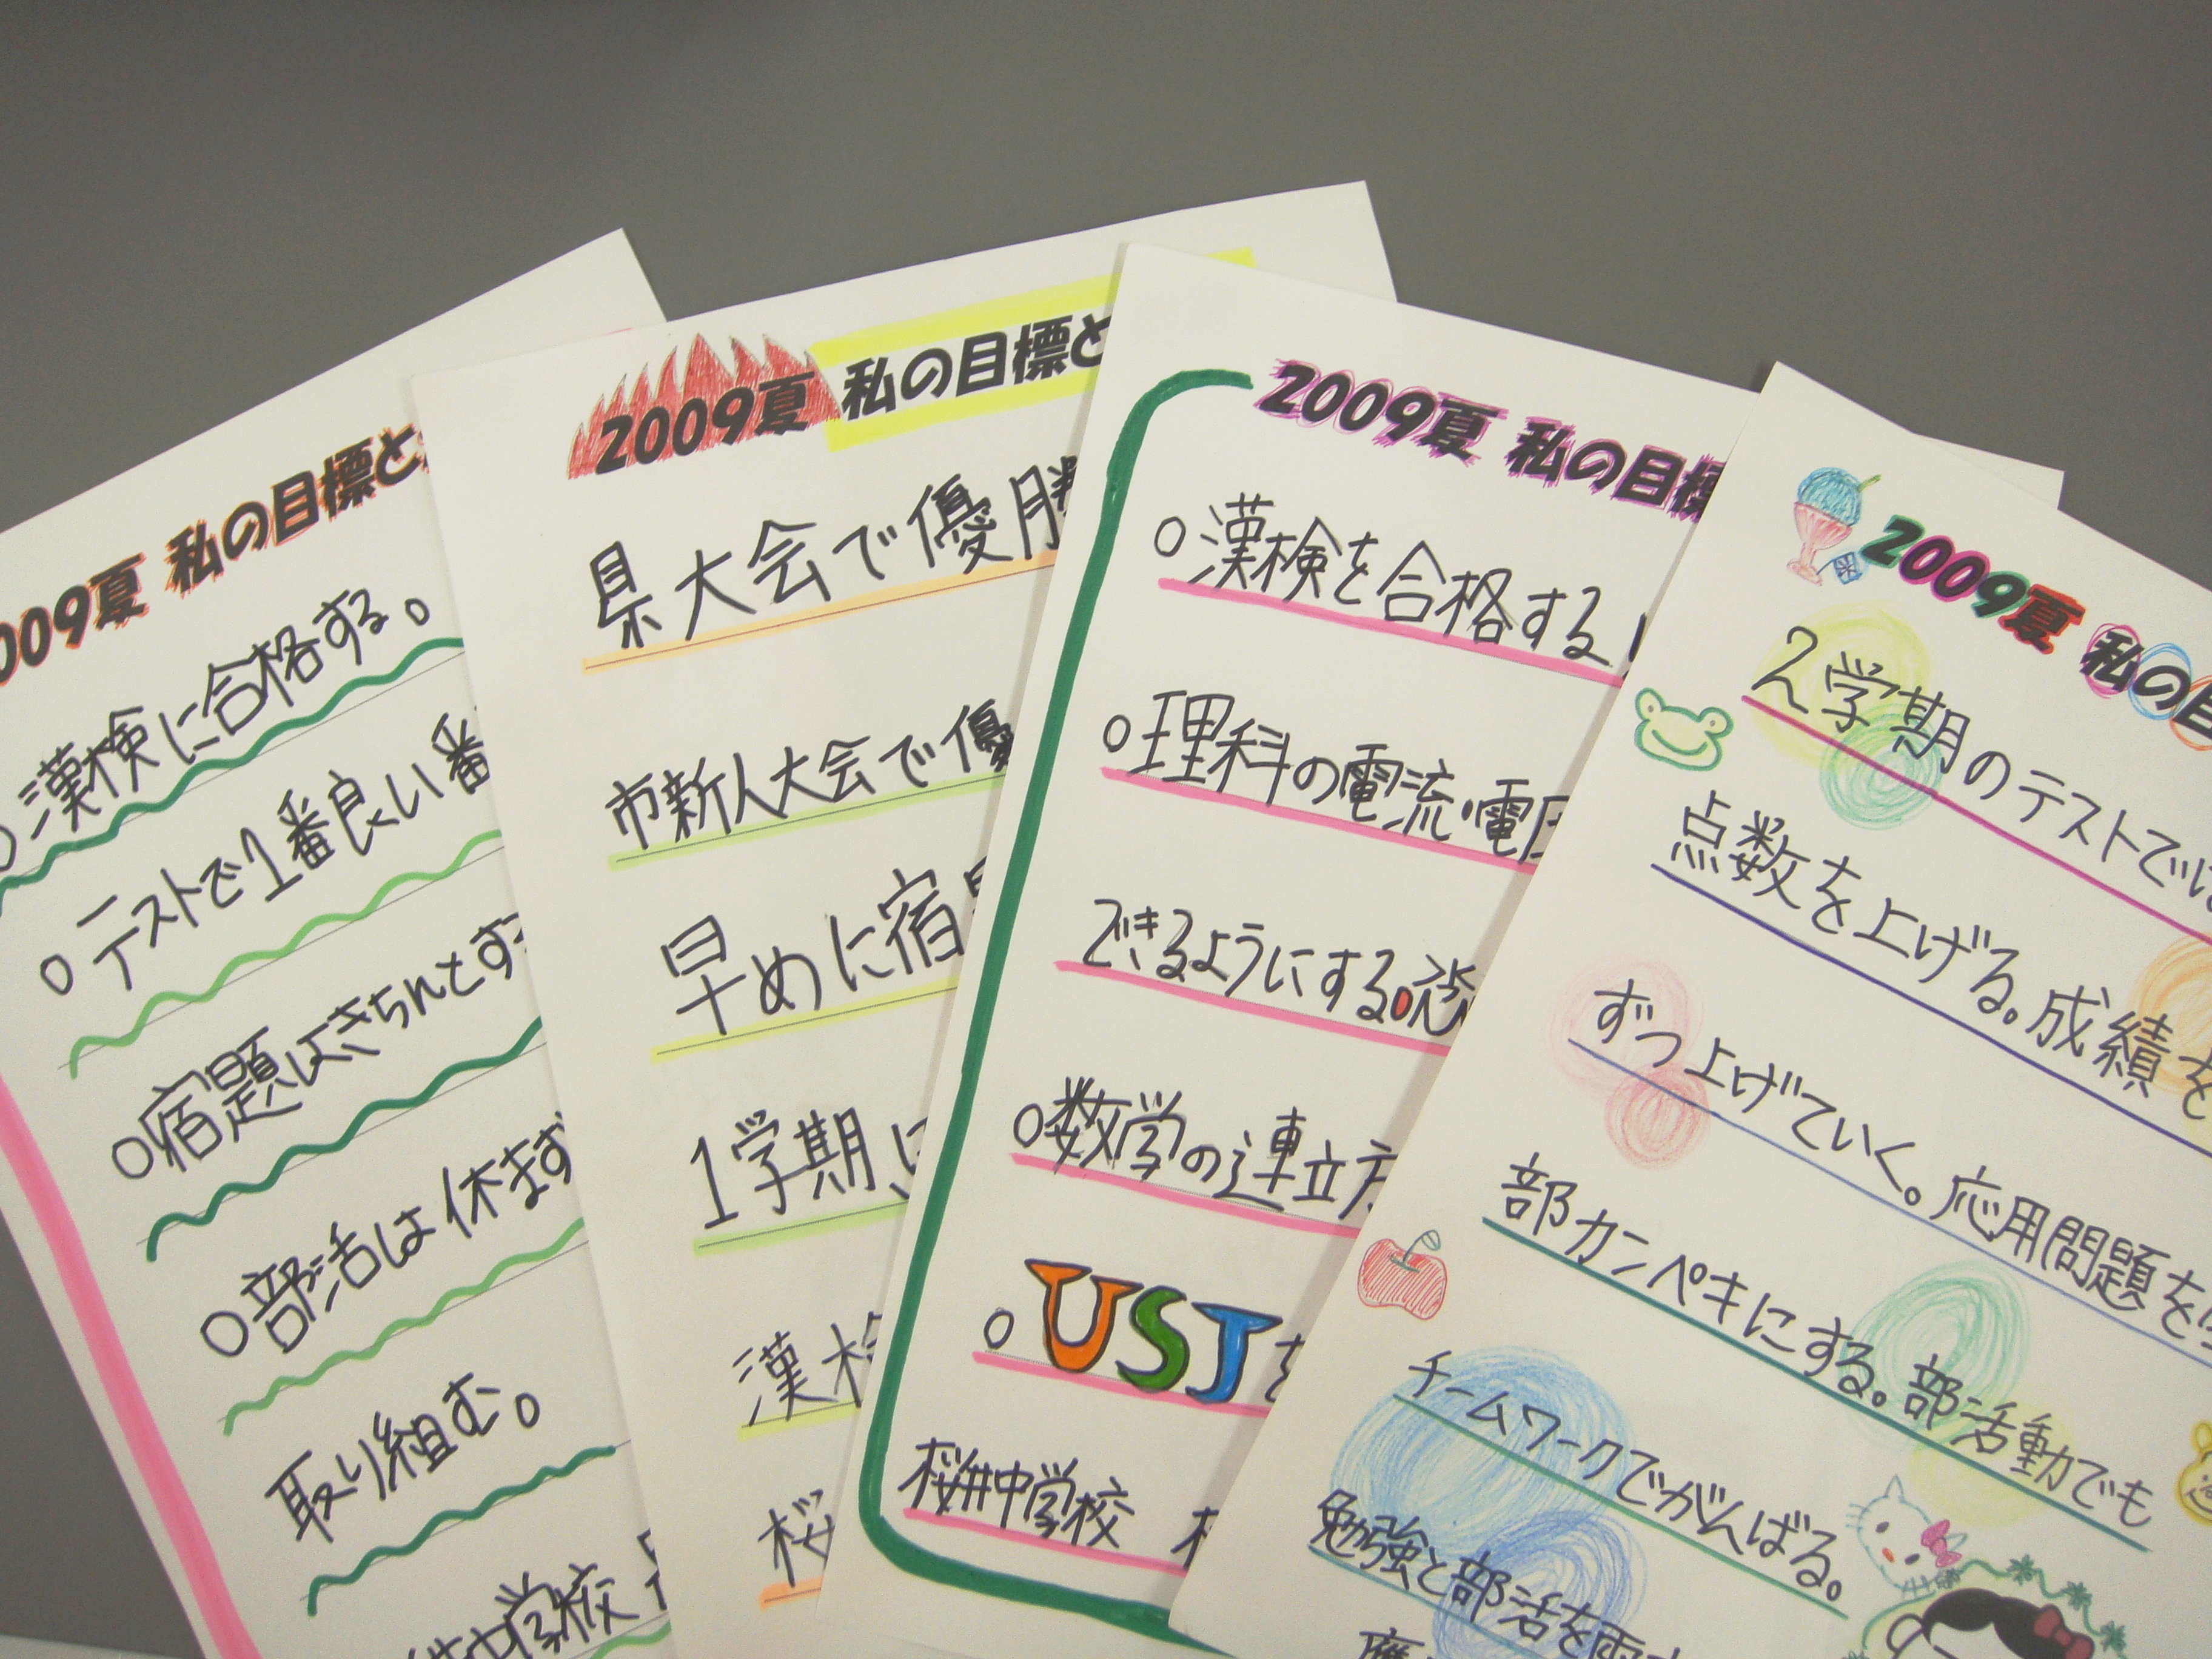 009夏 私の目標と
○漢検に合格する。
○テストで1番良い番
○宿題はきちんとす
○部活は休まず
取り組む。
中学校
2009夏 私の目標と
県大会で優勝
市新人大会で優
早めに宿
1学期に
漢検
桜
2009夏 私の目標
○漢検を合格する!
○理科の電流・電圧
できるようにする。
○数学の連立方
○USJを
桜井中学校
2009夏 私の目
2学期のテストでは
点数を上げる。成績を
ずつ上げていく。応用問題を
部カンペキにする。部活動でも
チームワークでがんばる。
勉強と部活を両